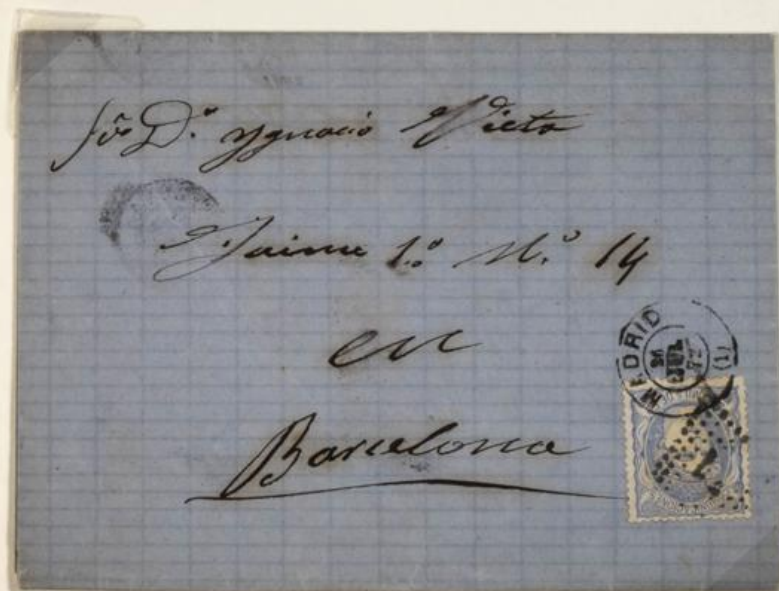 Sr. Dn. Ygnacio Vieta
Jaime 1º Nº 14
en
Barcelona
MADRID
JUL 72
(1)